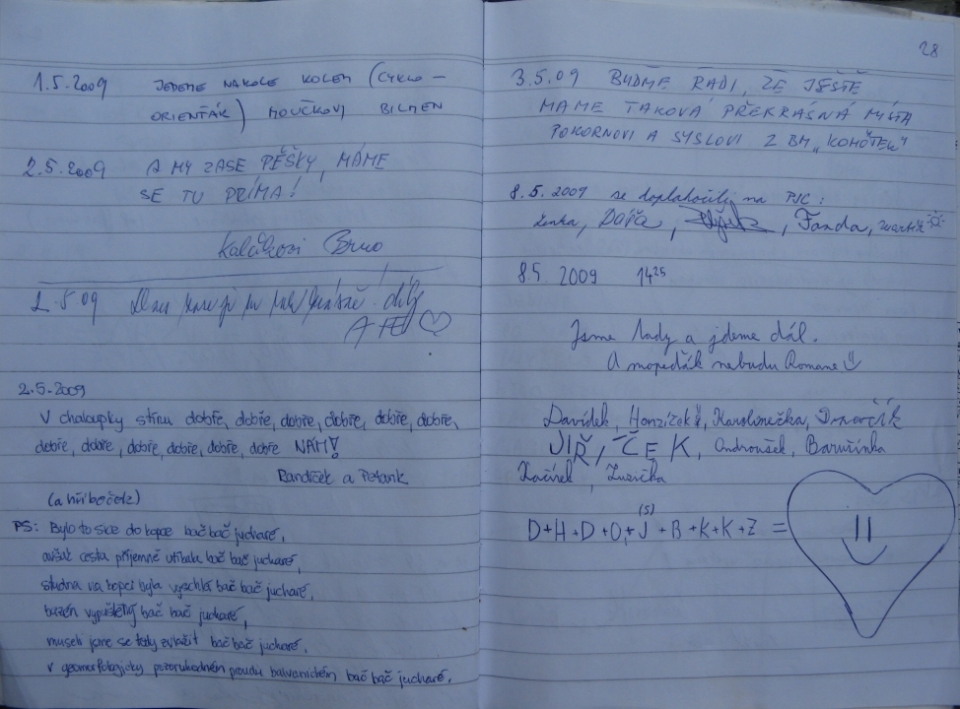 1.5.2009 JEDEME NA KOLE KOLEM (CYKLO-
ORIENŤÁK) MOUČKOVI BILMEN
2.5.2009 A MY ZASE PĚŠKY, MÁME
SE TU PRÍMA!
Kalčíkovi Brno
2.5 09 Dnes
2.5.2009
V chaloupky stínu dobře, dobře, dobře, dobře, dobře, dobře,
dobře, dobře, dobře, dobře, dobře, dobře NÁM!
Bandíček a Peťaník
(a hříbeček)
PS: Bylo to sice do kopce bač bač jucharé,
avšak cesta příjemně utíkala bač bač jucharé,
studna na kopci byla vyschlá bač bač jucharé,
bazén vypuštěný bač bač jucharé,
museli jsme se tedy zvlažit bač bač jucharé,
v geomorfologicky pozoruhodném proudu balvanitém bač bač jucharé.
28
3.5.09 BUĎME RÁDI, ŽE JEŠTĚ
MÁME TAKOVÁ PŘEKRÁSNÁ MÍSTA
POKORNOVI A SYSLOVI Z BM „KOHŮTEK"
8.5.2009 se doplahočili na PJC:
Lenka, Dáša, Fanda,
8.5. 2009 14 25
Jsme tady a jdeme dál.
A mopeďák nebudu Romane
Davídek, Honzíček, Karolínečka, Drsoňík
JIŘÍČEK, Ondroušek, Baruřinka
Kačírek, Zuzička
(S)
D+H+D+O+J+B+K+K+Z =